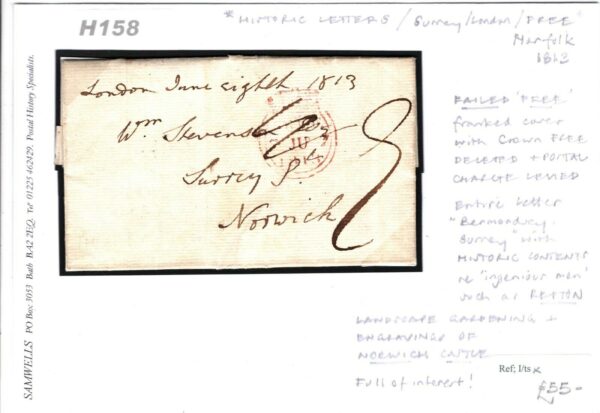 H158
"HISTORIC LETTERS / Surrey/London / FREE"
Norfolk
1813
London June eighth 1813
Wm Stevenson Esqr
Surrey St
Norwich
FAILED 'FREE'
franked cover
with Crown FREE
DELETED + POSTAL
CHARGE LEVIED
Entire letter
"Bermondsey,
Surrey" with
HISTORIC CONTENTS
re 'ingenious men'
such as REPTON
LANDSCAPE GARDENING +
ENGRAVINGS OF
NORWICH CASTLE
Full of interest!
Ref; I/ts
£55-
SAMWELLS PO Box 3053 Bath BA2 2EQ. Tel 01225 462429. Postal History Specialists.